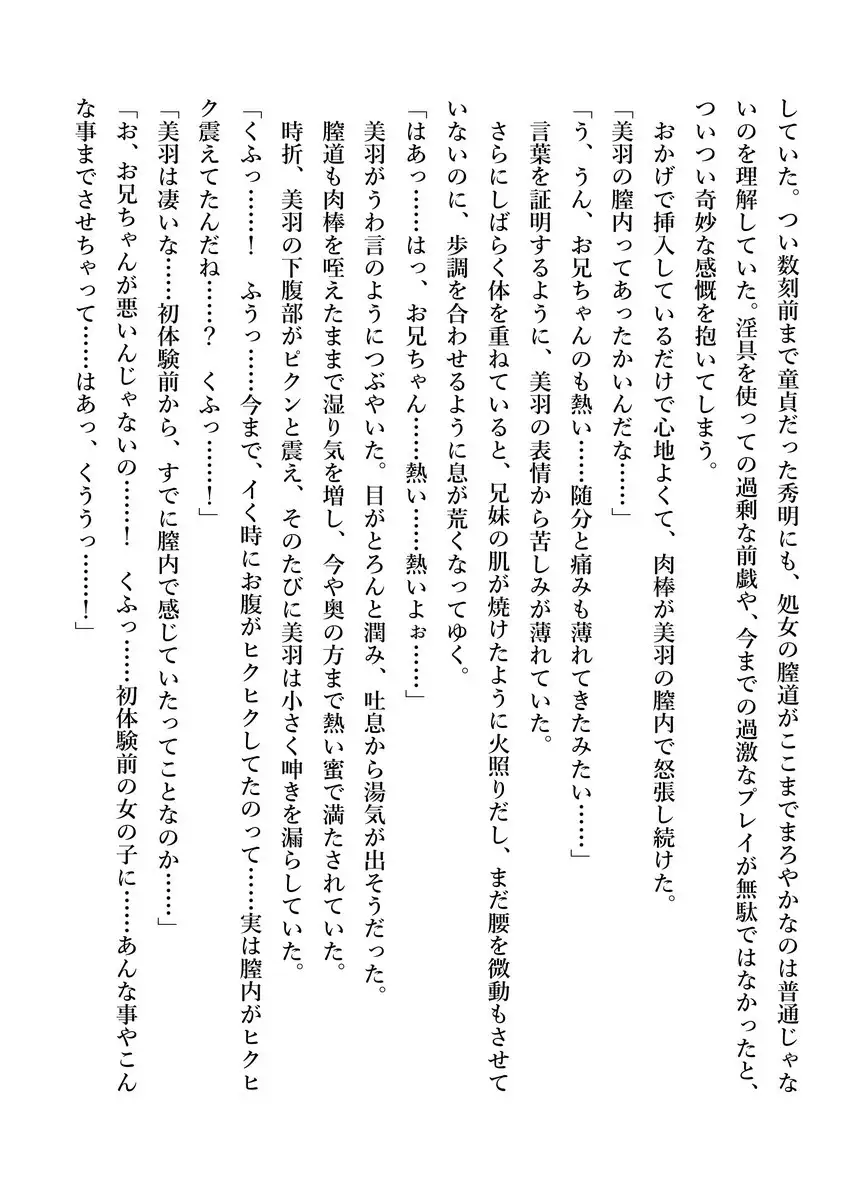 していた。つい数刻前まで童貞だった秀明にも、処女の膣道がここまでまろやかなのは普通じゃな
いのを理解していた。淫具を使っての過剰な前戯や、今までの過激なプレイが無駄ではなかったと、
ついつい奇妙な感慨を抱いてしまう。
おかげで挿入しているだけで心地よくて、肉棒が美羽の膣内で怒張し続けた。
「美羽の膣内ってあったかいんだな……」
「う、うん、お兄ちゃんのも熱い……随分と痛みも薄れてきたみたい……」
言葉を証明するように、美羽の表情から苦しみが薄れていた。
さらにしばらく体を重ねていると、兄妹の肌が焼けたように火照りだし、まだ腰を微動もさせて
いないのに、歩調を合わせるように息が荒くなってゆく。
「はあっ……はっ、お兄ちゃん……熱い……熱いよぉ……」
美羽がうわ言のようにつぶやいた。目がとろんと潤み、吐息から湯気が出そうだった。
膣道も肉棒を咥えたままで湿り気を増し、今や奥の方まで熱い蜜で満たされていた。
時折、美羽の下腹部がピクンと震え、そのたびに美羽は小さく呻きを漏らしていた。
「くふっ……！　ふうっ……今まで、イく時にお腹がヒクヒクしてたのって……実は膣内がヒクヒ
ク震えてたんだね……？　くふっ……！」
「美羽は凄いな……初体験前から、すでに膣内で感じていたってことなのか……」
「お、お兄ちゃんが悪いんじゃないの……！　くふっ……初体験前の女の子に……あんな事やこん
な事までさせちゃって……はあっ、くううっ……！」